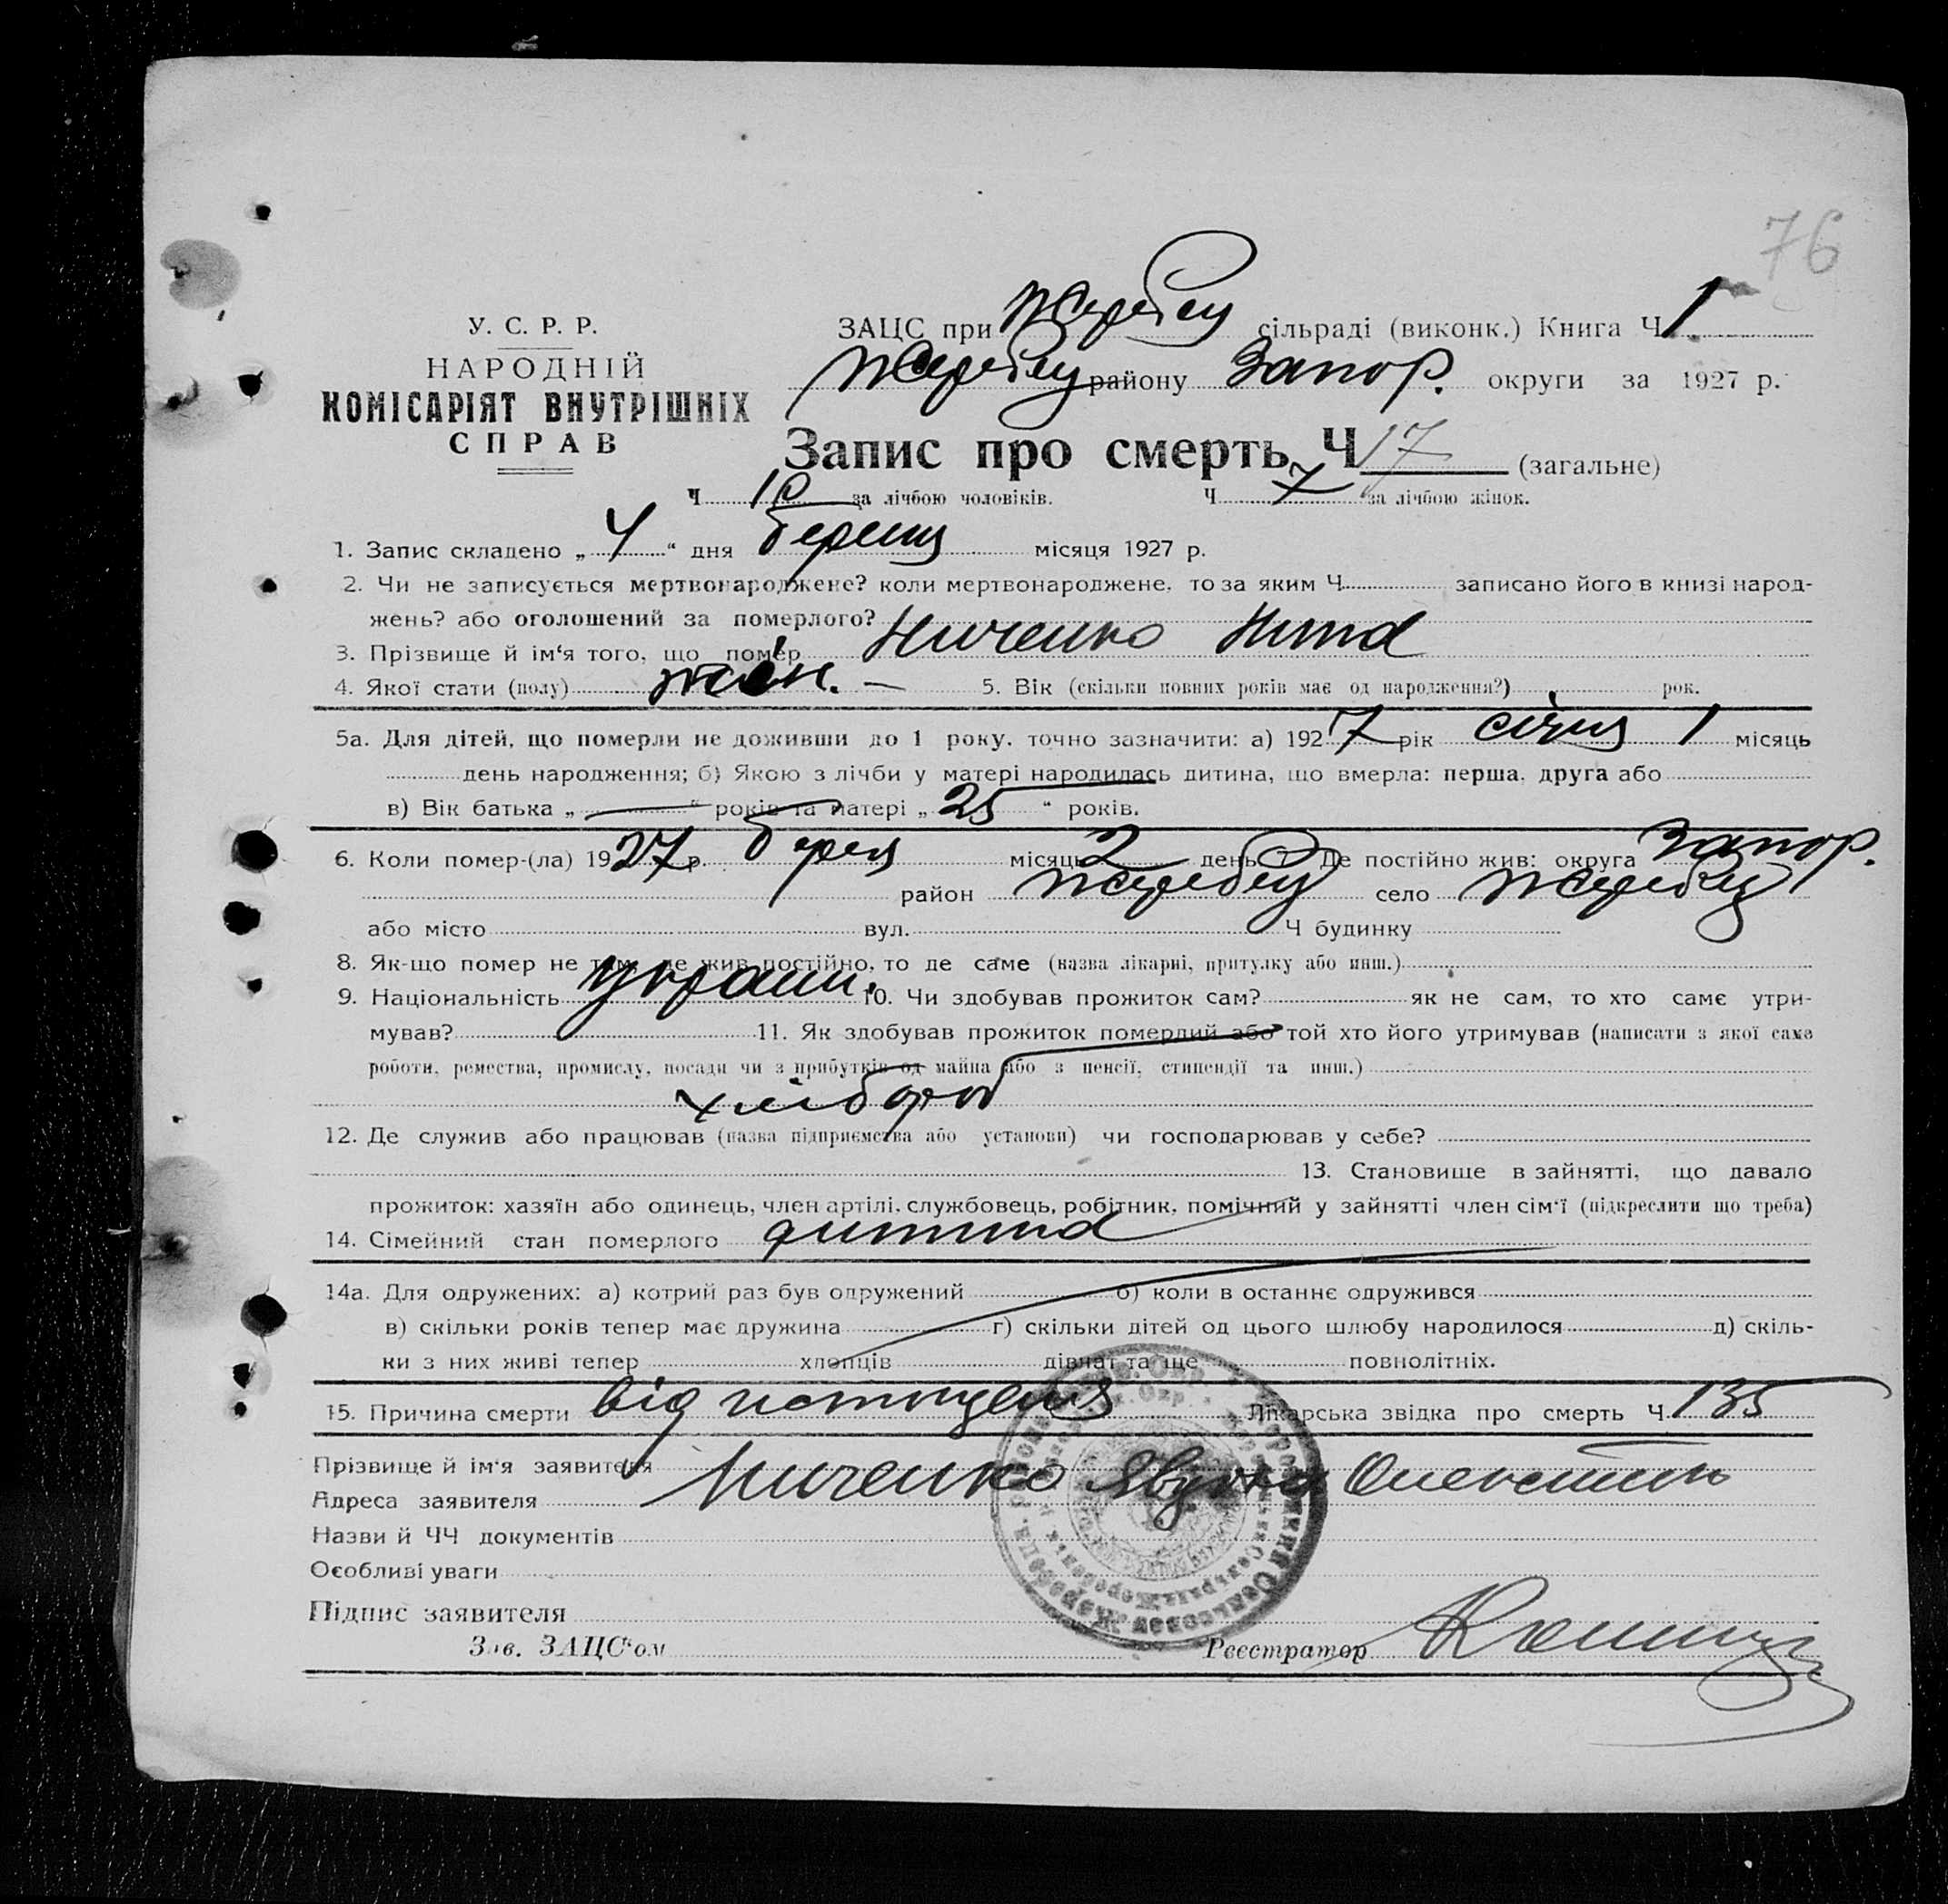 76
У. С. Р. Р.
НАРОДНІЙ
КОМІСАРІЯТ ВНУТРІШНІХ
СПРАВ
ЗАЦС при Жеребец сільраді (виконк.) Книга Ч 1
Жеребец району Запор. округи за 1927 р.
Запис про смерть Ч 17 (загальне)
Ч 10 за лічбою чоловіків. Ч 7 за лічбою жінок.
1. Запис складено „ 4 “ дня березня місяця 1927 р.
2. Чи не записується мертвонароджене? коли мертвонароджене, то за яким Ч записано його в книзі народ-
жень? або оголошений за померлого?
3. Прізвище й ім‘я того, що помер Ниченко Нина
4. Якої стати (полу) жін. — 5. Вік (скільки повних років має од народження?) рок.
5а. Для дітей, що померли не доживши до 1 року, точно зазначити: а) 1927 рік січня 1 місяць
день народження; б) Якою з лічби у матері народилась дитина, що вмерла: перша, друга або
в) Вік батька „ — “ років та матері „ 25 “ років.
6. Коли помер-(ла) 1927 р. березня місяць 2 день 7. Де постійно жив: округа Запор.
район Жеребец село Жеребец
або місто вул. Ч будинку
8. Як-що помер не там, де жив постійно, то де саме (назва лікарні, притулку або инш.)
9. Національність украин. 10. Чи здобував прожиток сам? як не сам, то хто саме утри-
мував? 11. Як здобував прожиток померлий або той хто його утримував (написати з якої саме
роботи, ремества, промислу, посади чи з прибутків од майна або з пенсії, стипендії та инш.)
хлібороб
12. Де служив або працював (назва підприємства або установи) чи господарював у себе?
13. Становище в зайнятті, що давало
прожиток: хазяїн або одинець, член артілі, службовець, робітник, помічний у зайнятті член сім‘ї (підкреслити що треба)
14. Сімейний стан померлого дитина
14а. Для одружених: а) котрий раз був одружений б) коли в останнє одружився
в) скільки років тепер має дружина г) скільки дітей од цього шлюбу народилося д) скіль-
ки з них живі тепер хлопців дівчат та ще повнолітніх.
15. Причина смерти від истощения Лікарська звідка про смерть Ч. 135
Прізвище й ім‘я заявителя Ниченко
Адреса заявителя
Назви й ЧЧ документів
Особливі уваги
Підпис заявителя
Зав. ЗАЦС‘ом Реєстратор